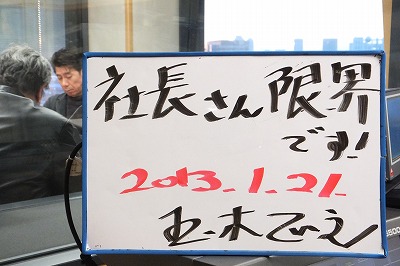 社長さん限界
です!
2013.1.21.
玉木